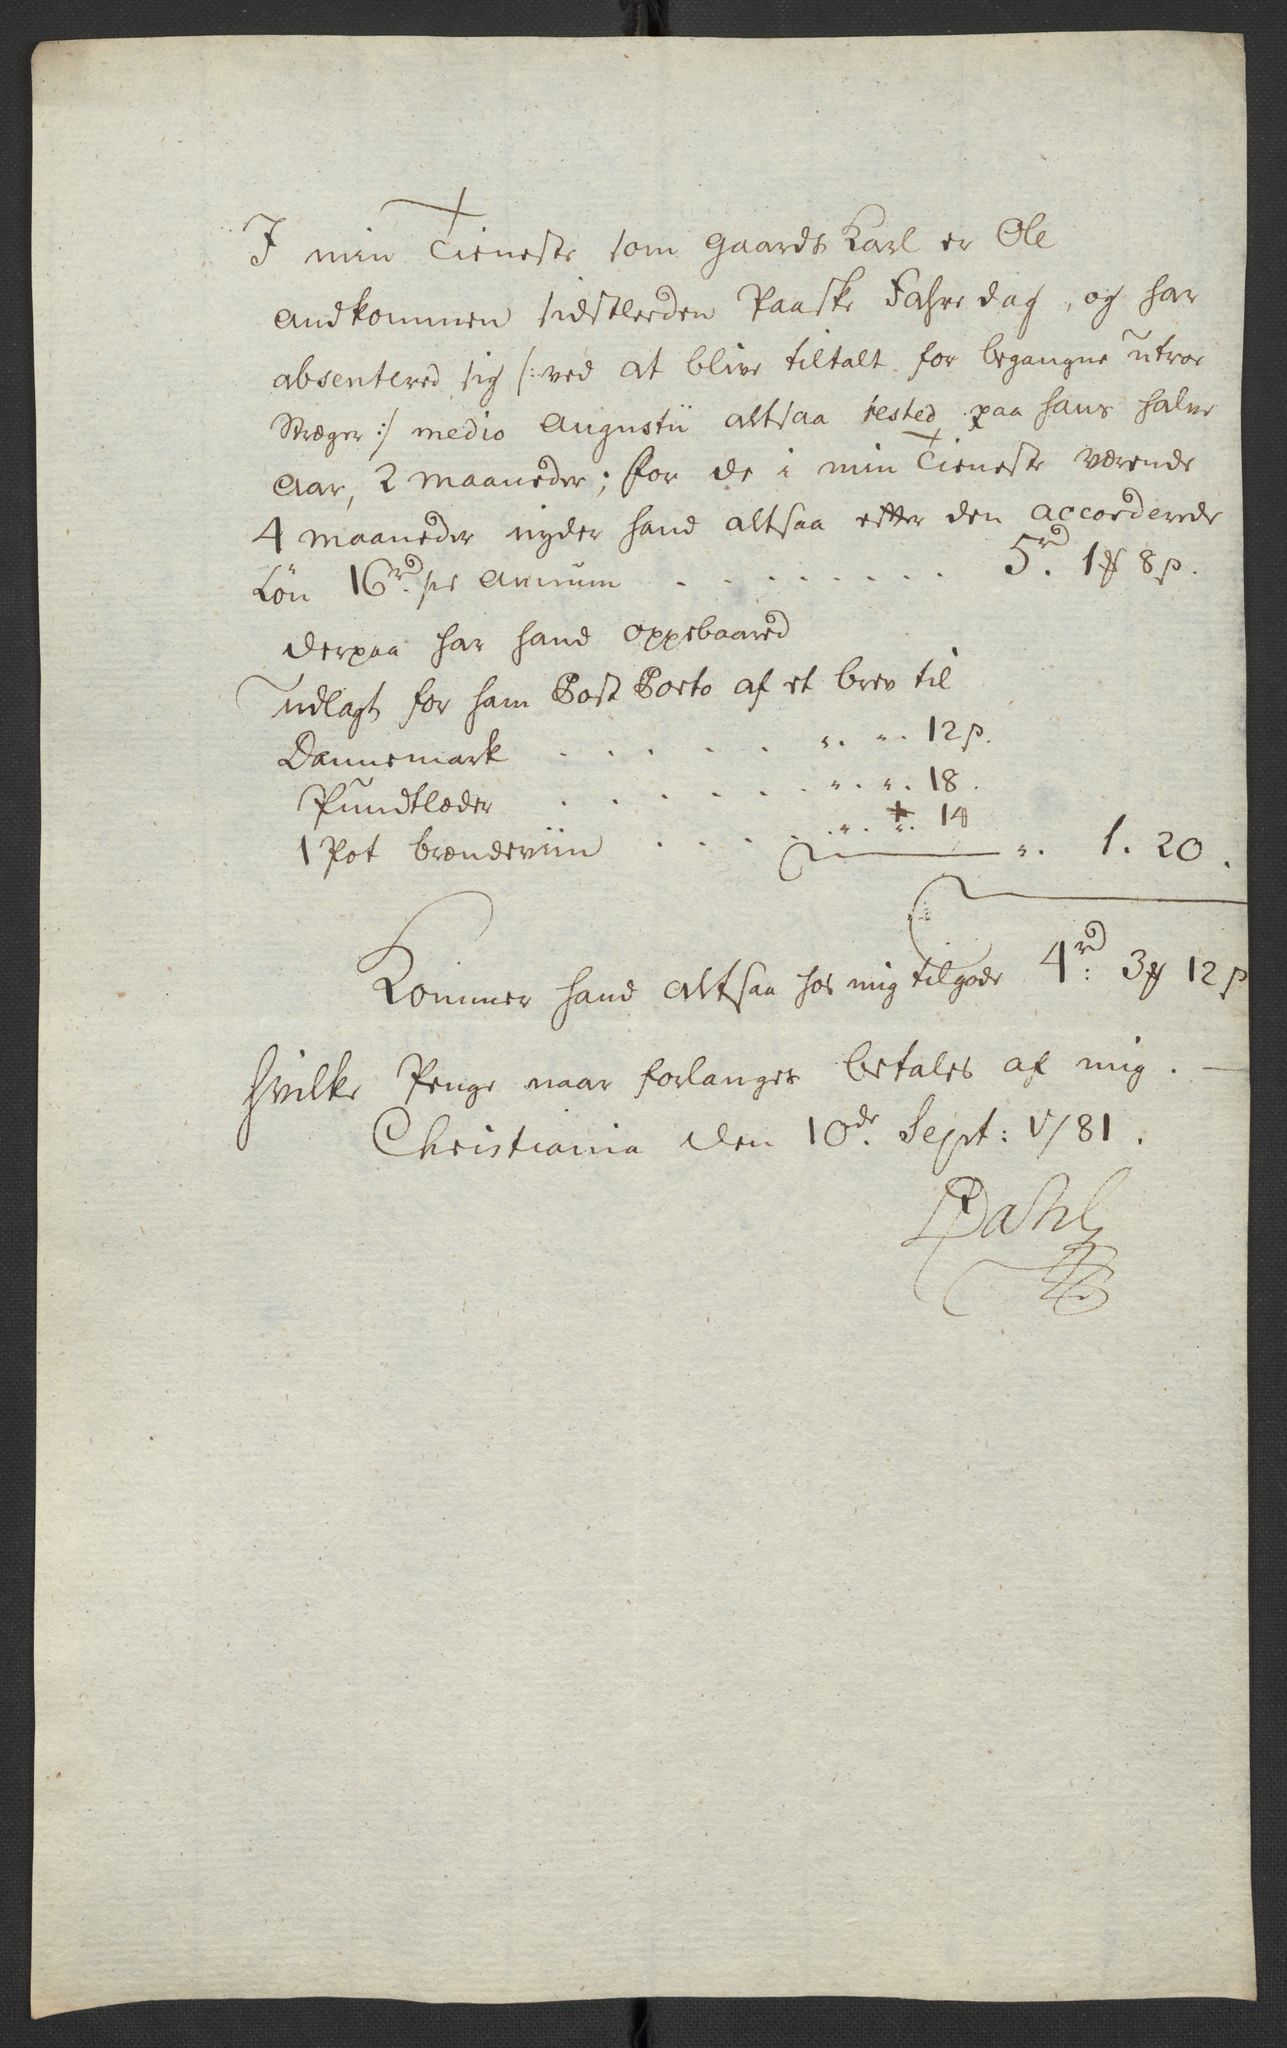 I min Tieneste som Gaards Karl er Ole
andkommen sidstleeden Paaske Fahredag, og har
absentered sig /: ved at blive tiltalt for begangne utroe
Stræger :/ medio Augustii altsaa rested paa hans halve
Aar, 2 maaneder; for de i min Tieneste værende
4 maaneder nyder hand altsaa efter den accorderede
Løn 16 rd. pr Annum . . . . . . . . . 5 rd. 1 # 8 s.
derpaa har hand oppebaared
Udlagt for ham Post Porto af et brev til
Dannemark . . . . . ". ". 12 s.
Pundtlæder . . . . . . ". ". 18.
1 Pot brændeviin . . . . . ". ". 14
". 1. 20.
Kommer hand altsaa hos mig tilgode 4 rd: 3 # 12 s
hvilke Penge naar forlanges betales af mig. —
Christiania den 10de Sept: 1781.
Dahl